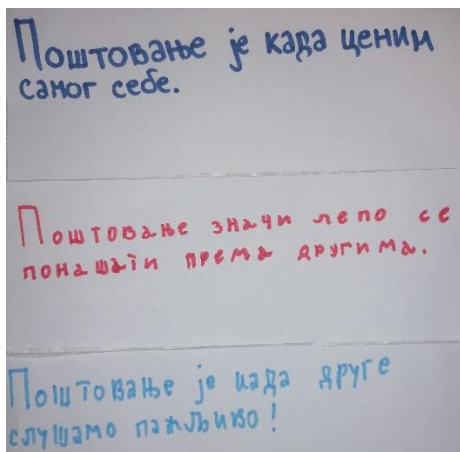 Поштовање је када ценим
самог себе.
Поштовање значи лепо се
понашати према другима.
Поштовање је када друге
слушамо пажљиво!